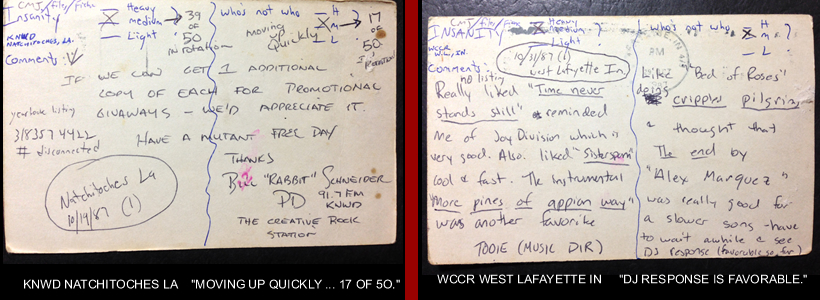 CMJ/file/
Insanity
KNWD
NATCHITOCHES, LA.
Comments:
X Heavy
medium
— Light
39
of
50
in rotation
who's not who
moving
Quickly
H
X M
— L
17
of
50
in rotation
IF WE CAN GET 1 ADDITIONAL
COPY OF EACH FOR PROMOTIONAL
GIVAWAYS — WE'D APPRECIATE IT.
318 357 4422
# disconnected
HAVE A MUTANT FREE DAY
THANKS
"RABBIT" SCHNEIDER
PD 91.7 FM
KNWD
THE CREATIVE ROCK
STATION
Natchitoches La
10/19/87 (1)
KNWD NATCHITOCHES LA "MOVING UP QUICKLY ... 17 OF 5O."
CMJ/file/
INSANITY
WCCR
W.L., IN.
Comments:
no listing
Heavy
medium
— Light
10/31/87 (1)
West Lafayette In.
Really liked "Time never
stands still" reminded
me of Joy Division which is
very good. Also liked "Sisterspam"
cool & fast. The Instrumental
"More pines of appian way"
was another favorite
TOOIE (MUSIC DIR)
who's not who
H
X M
— L
?
PM
Like "Bed of Roses"
doing
cripple pilgrim
a thought that
The end by
"Alex Marquez"
was really good for
a slower song - have
to wait awhile & see
DJ response (favorable so far)
WCCR WEST LAFAYETTE IN "DJ RESPONSE IS FAVORABLE."